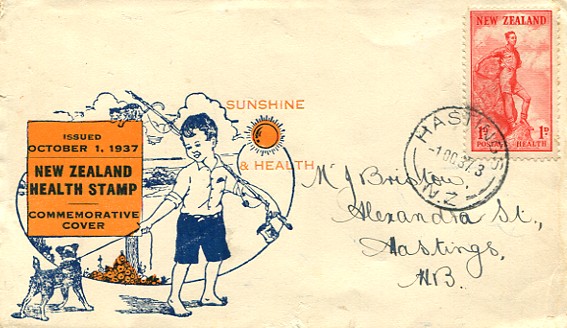 SUNSHINE
& HEALTH
ISSUED
OCTOBER 1, 1937
NEW ZEALAND
HEALTH STAMP
COMMEMORATIVE
COVER
NEW ZEALAND
1D 1D
POSTAGE - HEALTH
HASTINGS
-1 OC 37 3
N.Z.
M J Bristow,
Alexandra St.,
Hastings,
H.B.